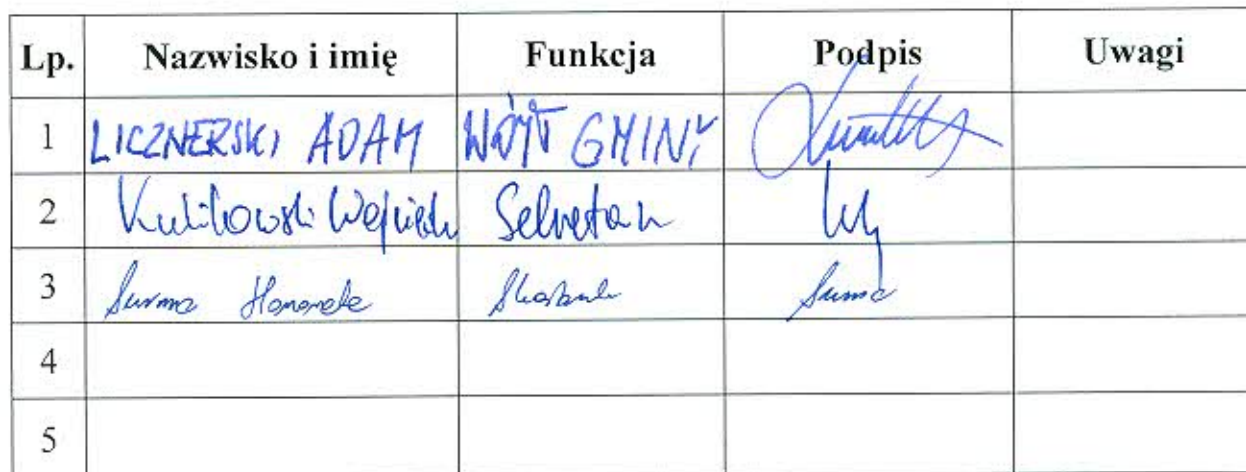 Lp. Nazwisko i imię Funkcja Podpis Uwagi
1 LICZNERSKI ADAM WÓJT GMINY
2 Kulikowski Wojciech Sekretarz
3 Surma Honorata Skarbnik Surma
4
5